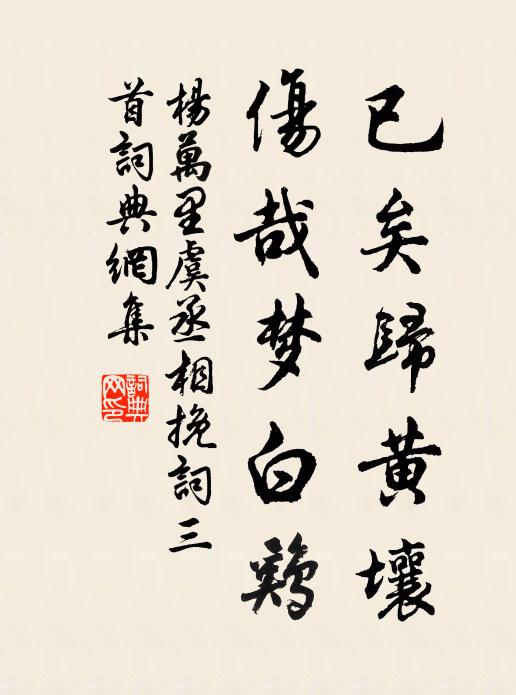 已矣歸黃壤
傷哉梦白鷄
楊萬里虞丞相挽詞三
首詞典網集
詞典
网印